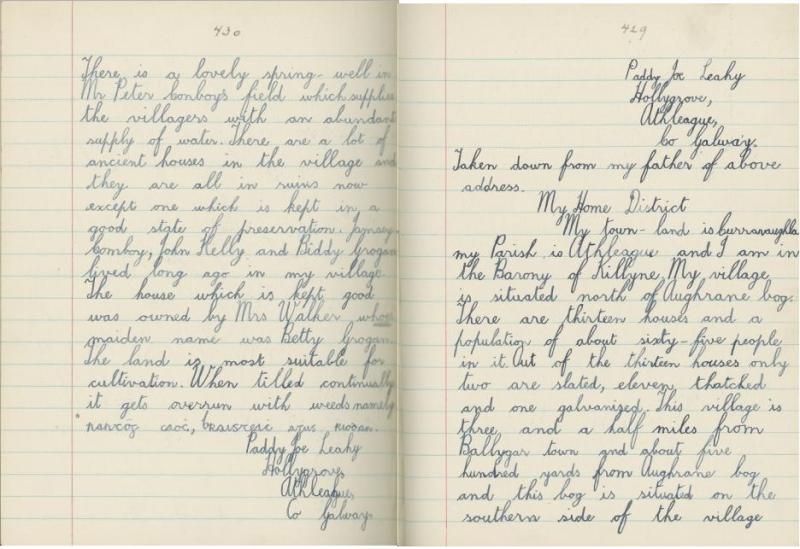 430
There is a lovely spring-well in
Mr Peter Conboys field which supplies
the villagers with an abundant
supply of water. There are a lot of
ancient houses in the village and
they are all in ruins now
except one which is kept in a
good state of preservation.
Comboy, John Kelly and Biddy Grogan
lived long ago in my village.
The house which is kept good
was owned by Mrs Walker whose
maiden name was Betty Grogan.
The land is most suitable for
cultivation. When tilled continually
it gets overrun with weeds namely
agus
Paddy Joe Leahy
Hollygrove,
Athleague,
Co Galway.
429
Paddy Joe Leahy
Hollygrove,
Athleague,
Co Galway.
Taken down from my father of above
address.
My Home District
My town-land is
my Parish is Athleague and I am in
the Barony of Killyne. My village
is situated north of Aughrane bog.
There are thirteen houses and a
population of about sixty-five people
in it. Out of the thirteen houses only
two are slated, eleven, thatched
and one galvanised. This village is
three, and a half miles from
Ballygar town and about five
hundred yards from Aughrane bog
and this bog is situated on the
southern side of the village